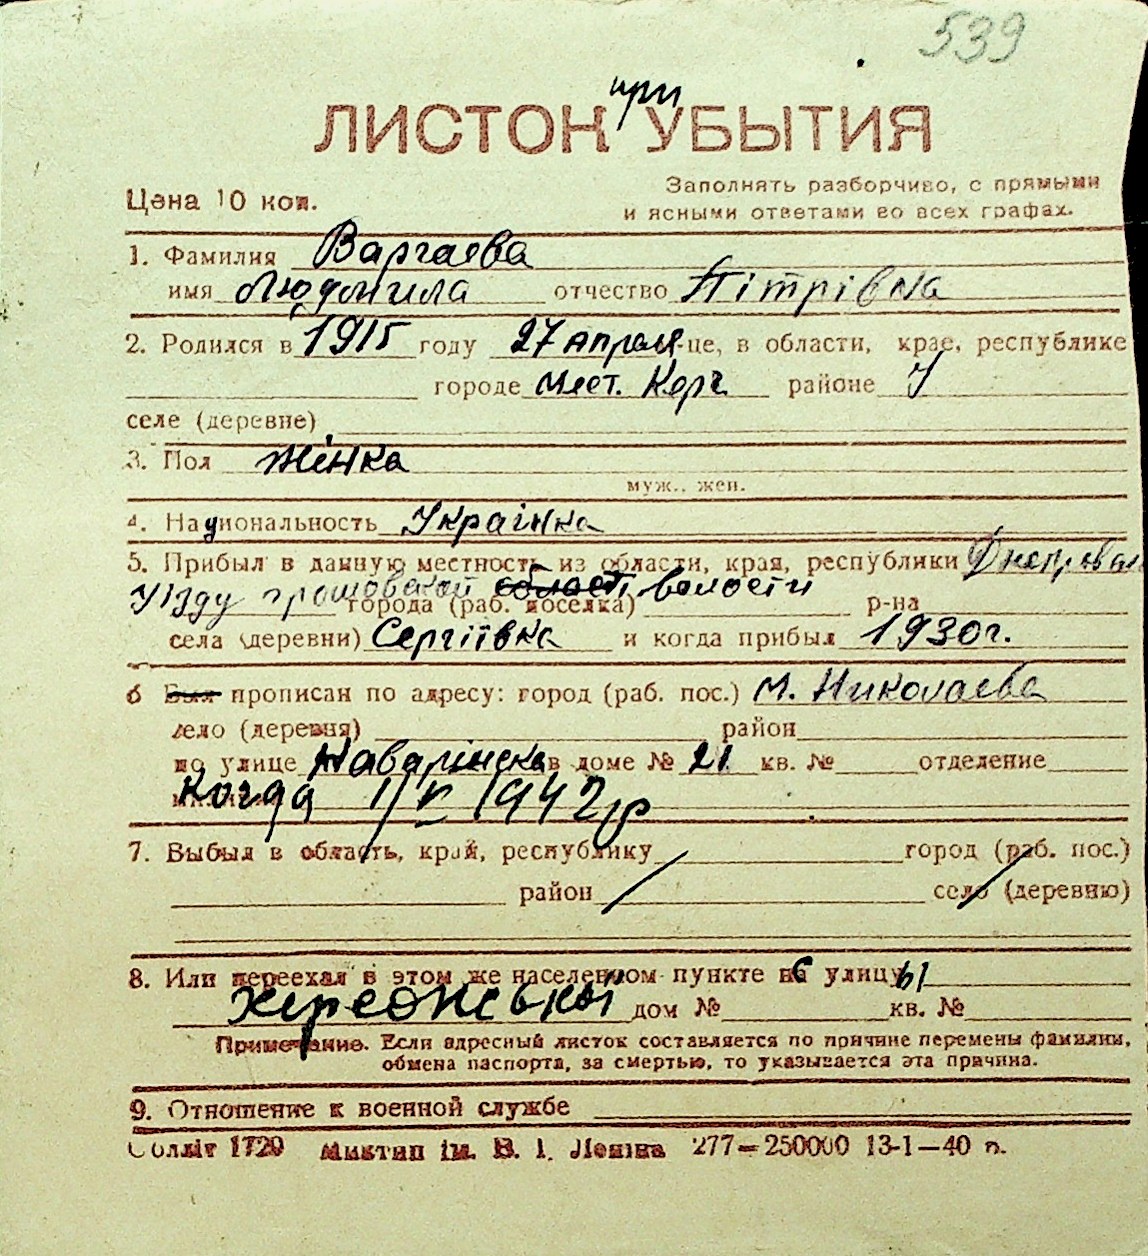 539
при
ЛИСТОК УБЫТИЯ
Заполнять разборчиво, с прямыми
Цена 10 коп.
и ясными ответами во всех графах.
1. Фамилия Варгаева
имя Людмила отчество Пітрівна
2. Родился в 1915 году 27 апреля-це, в области, крае, республике
городе мест. Керч районе
селе (деревне)
3. Пол жінка
муж., жен.
4. Национальность Українка
5. Прибыл в данную местность из области, края, республики
Уізду области волости
города (раб. поселка) р-на
села (деревни) Сергіївка и когда прибыл 1930г.
6 Был прописан по адресу: город (раб. пос.) м. Николаева
село (деревня) район
по улице Наваринска в доме № 21 кв. № отделение
Когда 1/V 1942р
7. Выбыл в область, край, республику город (раб. пос.)
район село (деревню)
8. Или переехал в этом же населенном пункте с улицы
херсонськой дом № кв. №
Примечание. Если адресный листок составляется по причине перемены фамилии,
обмена паспорта, за смертью, то указывается эта причина.
9. Отношение к военной службе
Обліт 1720 Миктип ім. В. І. Леніна 277—250000 13-1—40 р.